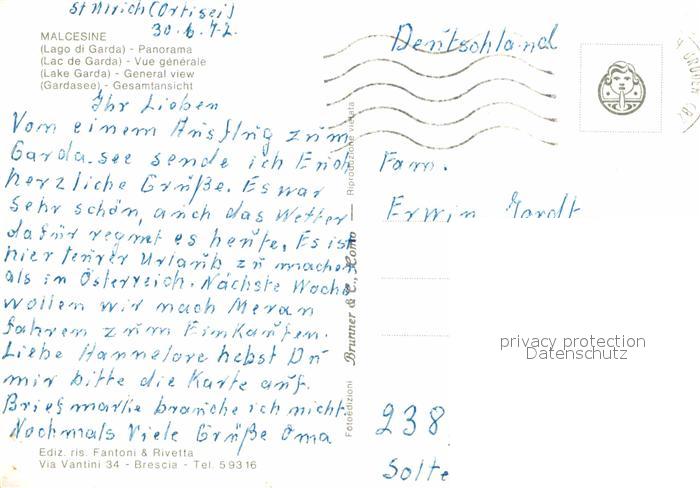 St Ulrich (Ortisei)
30.6.72.
MALCESINE
(Lago di Garda) - Panorama
(Lac de Garda) - Vue générale
(Lake Garda) - General view
(Gardasee) - Gesamtansicht
Ihr Lieben
Vom einem Ausflug zum
Garda.see sende ich Euch
herzliche Grüße. Es war
sehr schön, auch das Wetter
dafür regnet es heute, Es ist
hier teurer Urlaub zu machen
als in Österreich. Nächste Woche
wollen wir nach Meran
fahren zum Einkaufen.
Liebe Hannelore hebst Du
mir bitte die Karte auf.
Briefmarke brauche ich nicht
Nochmals Viele Grüße Oma
Ediz. ris. Fantoni & Rivetta
Via Vantini 34 - Brescia - Tel. 59316
Fotoedizioni Brunner & C., Como — Riproduzione vietata
Deutschland
Fam.
Erwin
238
Solte
privacy protection
Datenschutz